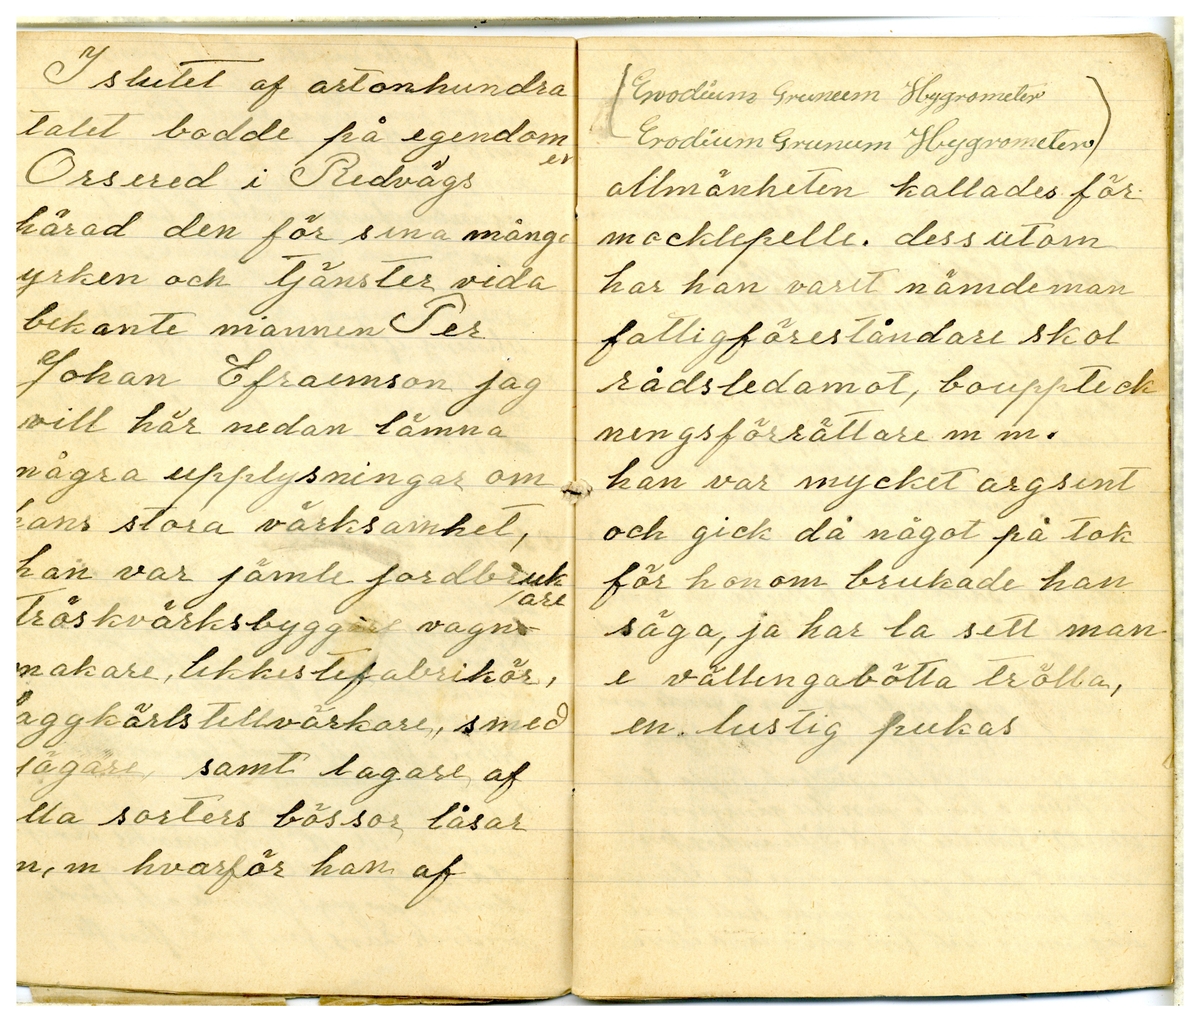 I slutet af artonhundra
talet bodde på egendomen
Orsered i Redvägs
härad den för sina många
yrken och tjänster vida
bekante mannen Per
Johan Efraemson jag
vill här nedan lämna
några upplysningar om
hans stora värksamhet,
han var jämte jordbrukare
tröskvärksbyggare vagn-
makare, likkistefabrikör,
laggkärlstillvärkare, smed
jägare, samt lagare af
alla sorters bössor låsar
m, m hvarför han af
(Erodium Gruneum Hygrometer
Erodium Grunum Hygrometer)
allmänheten kallades för
mocklepelle. dessutom
har han varit nämdeman
fattigföreståndare skol
rådsledamot, bouppteck
ningsförrättare m m.
han var mycket argsint
och gick då något på tok
för honom brukade han
säga, ja har la sett man
i vällingabötta trölla,
en lustig pukas